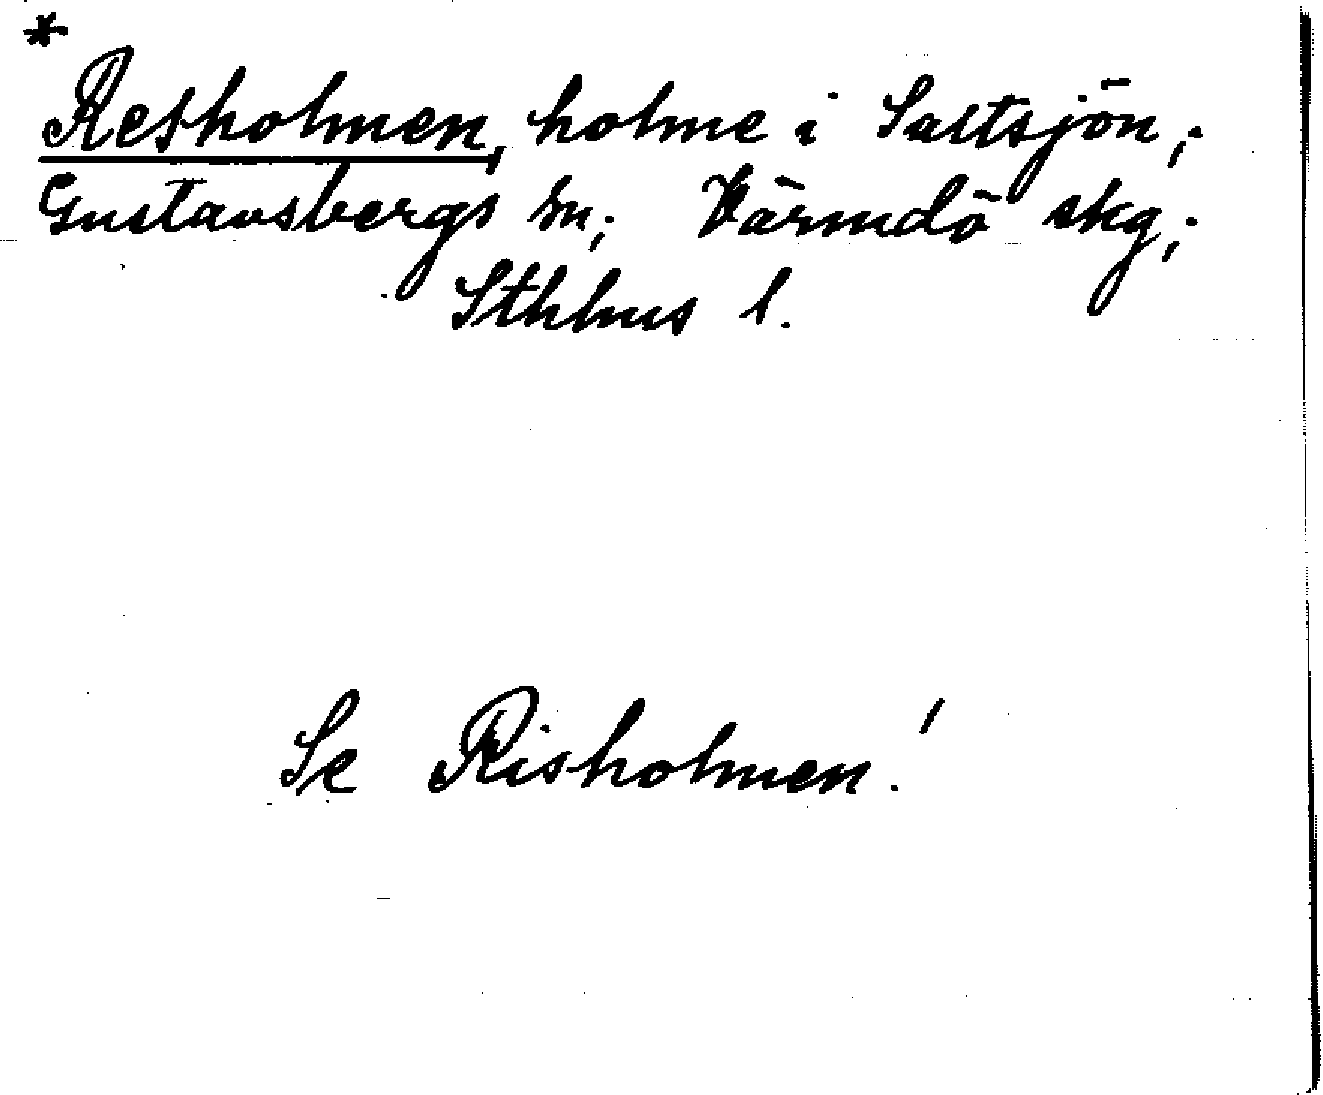 *
Resholmen, holme i Saltsjön;
Gustavsbergs sn; Värmdö skg;
Sthlms l.
Se Risholmen!